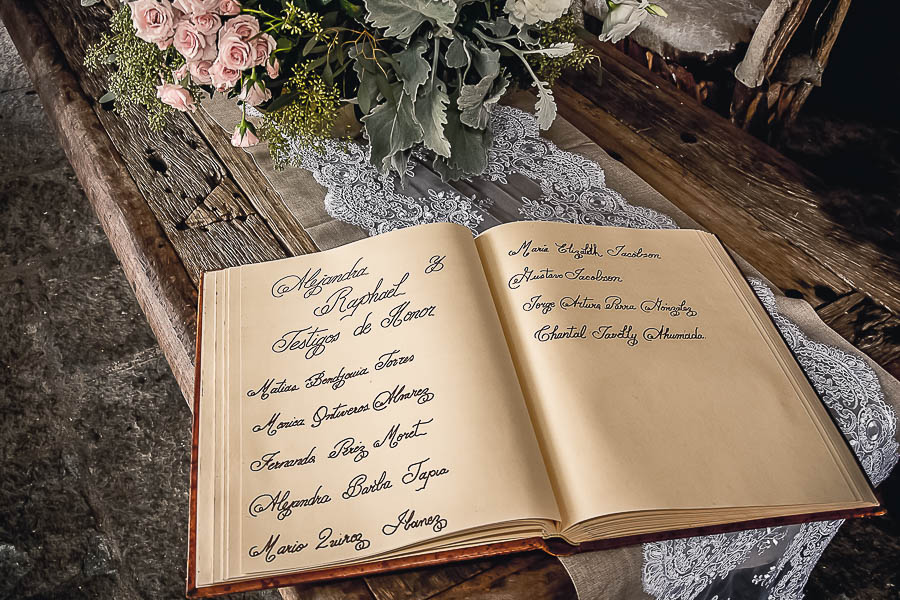 Alejandra y
Raphael
Testigos de Honor
Matias Bendjouia Torres
Monica Ontiveros Alvarez
Fernando Pérez Moret
Alejandra Barba Tapia
Mario Quiroz Ibanez
Marie Elizabeth Jacobson
Gustavo Jacobson
Jorge Arturo Parra Gonzalez
Chantal Tavelly Ahumada.